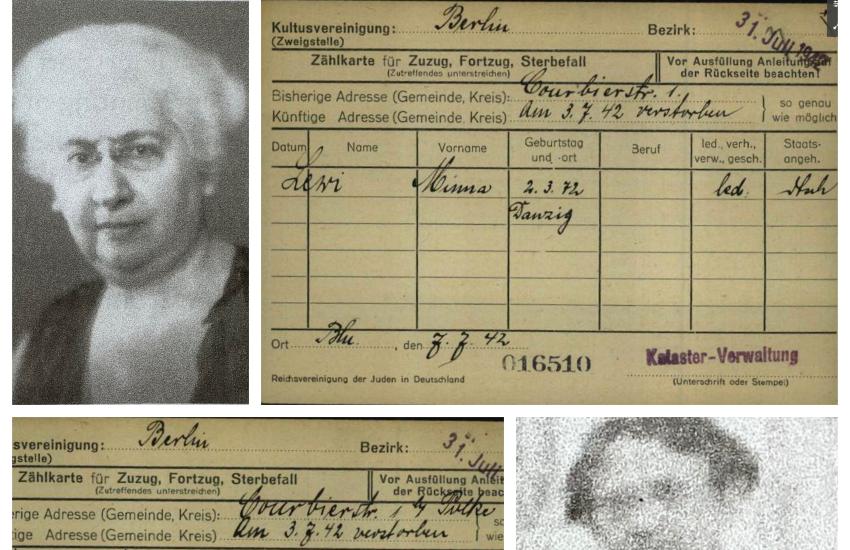 Kultusvereinigung: Berlin Bezirk: 31. Juli 1942
(Zweigstelle)
Zählkarte für Zuzug, Fortzug, Sterbefall
(Zutreffendes unterstreichen)
Vor Ausfüllung Anleitung auf
der Rückseite beachten!
Bisherige Adresse (Gemeinde, Kreis): Courbierstr. 1.
Künftige Adresse (Gemeinde, Kreis): am 3. 7. 42 verstorben
so genau
wie möglich
Datum Name Vorname Geburtstag und -ort Beruf led., verh., verw., gesch. Staats-angeh.
Lewi Minna 2. 3. 72 led.
Danzig
Ort Bln. , den 7. 7. 42
016510
Kataster-Verwaltung
Reichsvereinigung der Juden in Deutschland
(Unterschrift oder Stempel)
svereinigung: Berlin Bezirk: 31. Juli
gstelle)
Zählkarte für Zuzug, Fortzug, Sterbefall
(Zutreffendes unterstreichen)
Vor Ausfüllung Anleit
der Rückseite beac
erige Adresse (Gemeinde, Kreis): Courbierstr.
ige Adresse (Gemeinde, Kreis): am 3. 7. 42 verstorben
so
wie